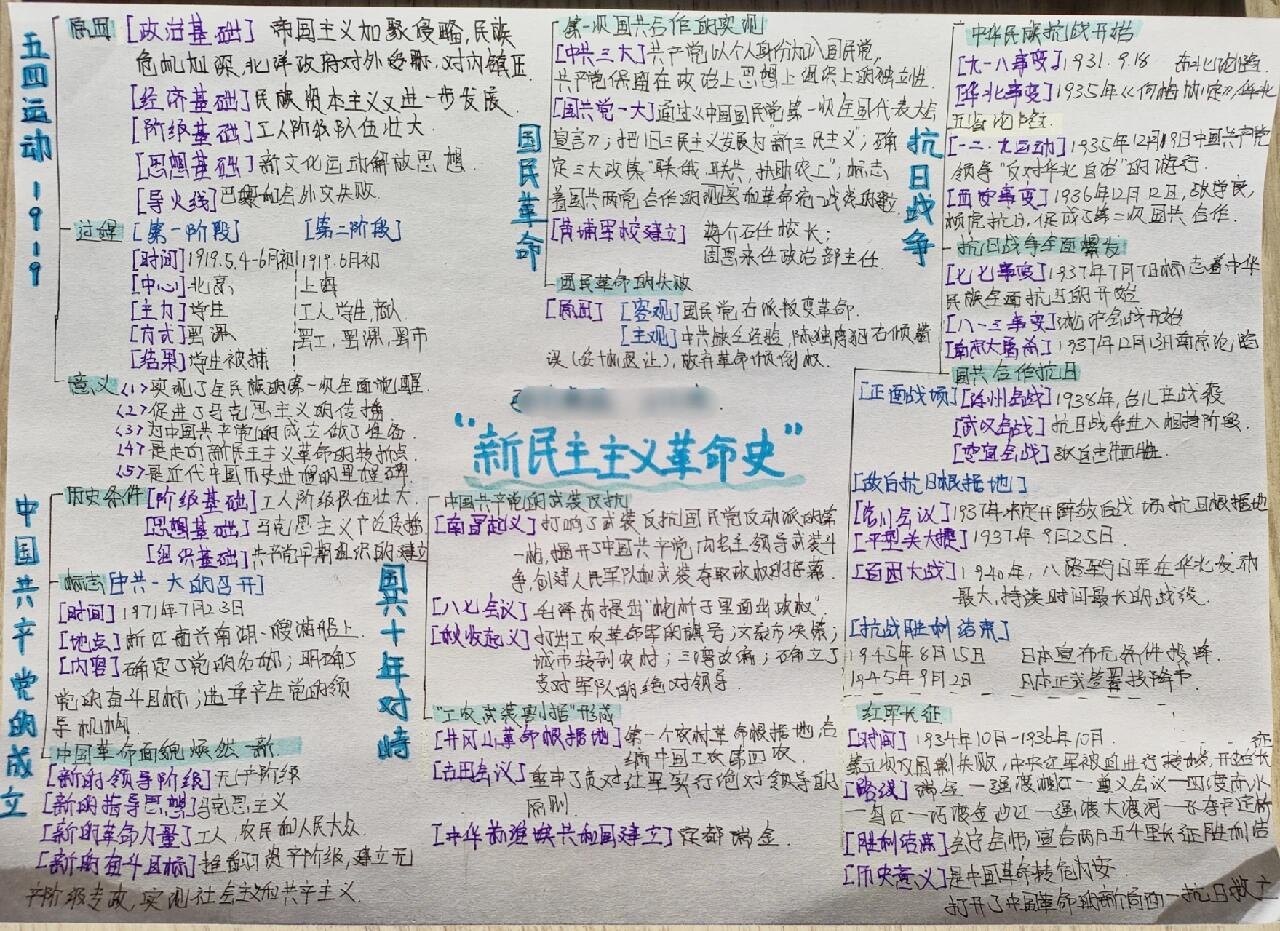 五四运动 1919
原因 [政治基础] 帝国主义加聚侵略,民族
危机加深,北洋政府对外妥协,对内镇压.
[经济基础]民族资本主义义进一步发展
[阶级基础]工人阶级队伍壮大.
[思想基础]新文化运动解放思想
[导火线]巴黎和会外交失败.
过程 [第一阶段] [第二阶段]
[时间]1919.5.4-6月初 1919.6月初
[中心]北京 上海
[主力]学生 工人,学生,商人
[方式]罢课 罢工,罢课,罢市
[结果]学生被捕
意义 <1>实现了全民族的第一次全面觉醒
<2>促进了马克思主义的传播
<3>为中国共产党的成立做了准备
<4>是走向新民主义革命的转折点
<5>是近代中国历史进程的里程碑
中国共产党的成立
历史条件 [阶级基础]工人阶级队伍壮大
[思想基础]马克思主义广泛传播
[组织基础]共产党早期组织的建立
标志[中共一大的召开]
[时间]1971年7月23日
[地点]浙江嘉兴南湖一艘游船上
[内容]确定了党的名称;明确了
党的奋斗目标;选举产生党的领
导机构
中国革命面貌焕然一新
[新的领导阶级]无产阶级
[新的指导思想]马克思主义
[新的革命力量]工人,农民和人民大众.
[新的奋斗目标]推翻资产阶级,建立无
产阶级专政,实现社会主义和共产主义.
国民革命
第一次国共合作的实现
[中共三大]共产党以个人身份加入国民党,
共产党保留在政治上思想上组织上的独立性.
[国共党一大]通过《中国国民党第一次全国代表大会
宣言》;把旧三民主义发展为新三民主义";确
定三大政策"联俄,联共,扶助农工";标志
着国共两党合作的实现和革命统一战线的建立
[黄埔军校建立] 蒋介石任校长;
周恩来任政治部主任.
国民革命的失败
[原因] [客观]国民党右派叛变革命.
[主观]中共缺乏经验,陈独秀犯右倾错
误(妥协退让),放弃革命领导权.
"新民主主义革命史"
国共十年对峙
中国共产党的武装反抗
[南昌起义]打响了武装反抗国民党反动派的第
一枪,揭开了中国共产党独立领导武装斗
争,创建人民军队和武装夺取政权的序幕.
[八七会议] 毛泽东提出"枪杆子里面出政权"
[秋收起义]打出工农革命军的旗号;文家市决策;
城市转到农村;三湾改编;确立了
党对军队的绝对领导
"工农武装割据"形成
[井冈山革命根据地]第一个农村革命根据地点
编中国工农第四农.
[古田会议]重申了党对红军实行绝对领导的
原则
[中华苏维埃共和国建立]定都瑞金.
抗日战争
中华民族抗战开始
[九一八事变]1931.9.18 东北沦陷.
[华北事变]1935年《何梅协定》,华北
五省沦陷.
[一二·九运动]1935年12月9日中国共产党
领导"反对华北自治"的游行.
[西安事变]1936年12月12日,张学良,
杨虎抗日,促成了第二次国共合作.
抗日战争全面爆发
[七七事变]1937年7月7日标志着中华
民族全面抗日的开始
[八一三事变]淞沪会战开始
[南京大屠杀]1937年12月13日南京沦陷
国共合作抗日
[正面战场][徐州会战]1938年,台儿庄战役
[武汉会战]抗日战争进入相持阶段.
[枣宜会战]张自忠牺牲.
[敌后抗日根据地]
[洛川会议]1937年决定开辟敌后战场抗日根据地
[平型关大捷]1937年9月25日.
[百团大战]1940年,八路军与日军在华北发动
最大,持续时间最长的战役.
[抗战胜利结束]
1945年8月15日 日本宣布无条件投降.
1945年9月2日 日本正式签署投降书
红军长征
[时间]1934年10月-1936年10月.
第五次反围剿失败,中央红军被迫进行转移,开始长征
[路线]瑞金—强渡湘江—遵义会议—四渡赤水
—乌江—巧渡金沙江—强渡大渡河—
[胜利结束]会宁会师,宣告两万五千里长征胜利结
[历史意义]是中国革命转危为安
打开了中国革命的新局面—抗日救亡